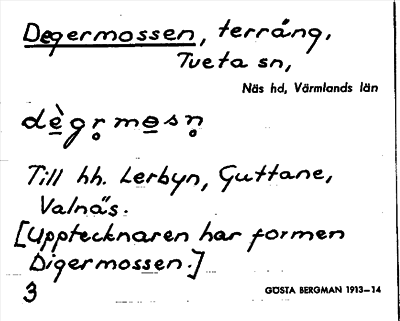 Degermossen, terräng,
Tveta sn,
Näs hd, Värmlands län
dè̱gr̥mo̱sn̥
Till hh. Lerbyn, Guttane,
Valnäs.
[Upptecknaren har formen
Digermossen.]
3
GÖSTA BERGMAN 1913–14